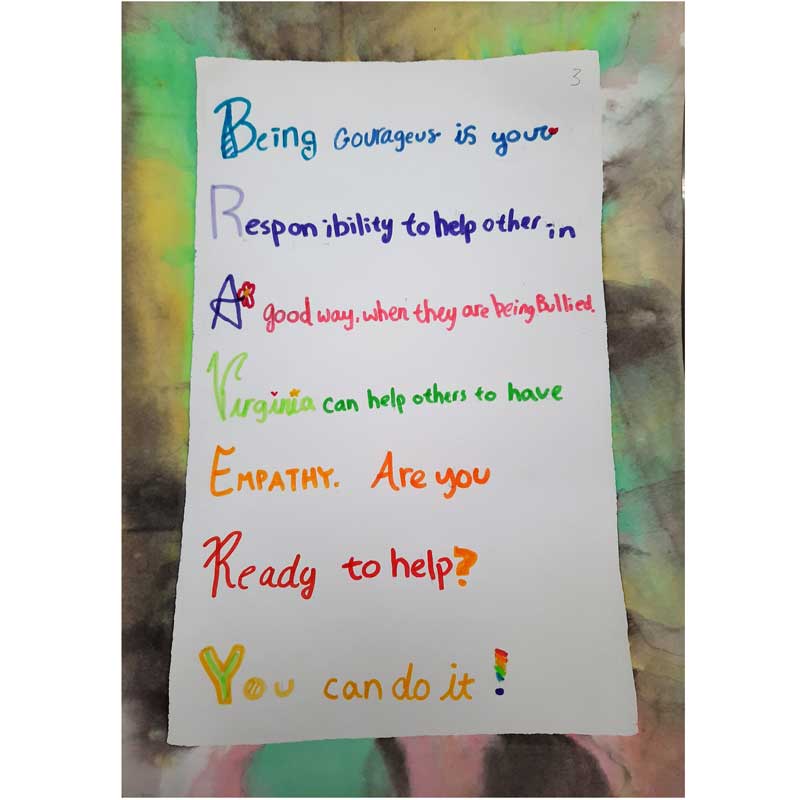 3
Being Courageus is your
Responibility to help other in
A good way, when they are being Bullied.
Virginia can help others to have
EMPATHY. Are you
Ready to help?
You can do it!